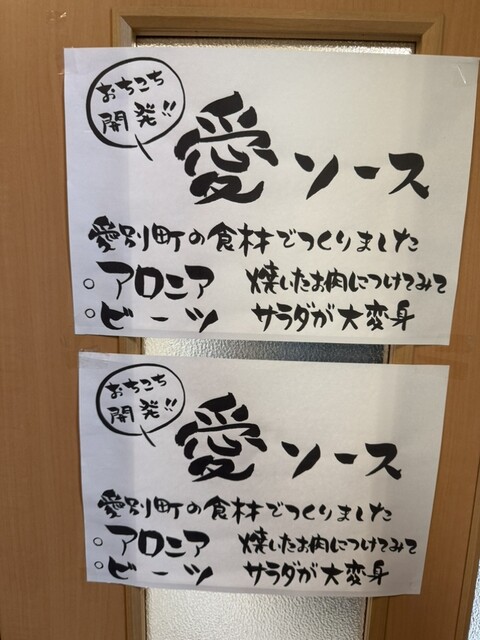 おちこち
開発!!
愛ソース
愛別町の食材でつくりました
○アロニア 焼いたお肉につけてみて
○ビーツ サラダが大変身
おちこち
開発!!
愛ソース
愛別町の食材でつくりました
○アロニア 焼いたお肉につけてみて
○ビーツ サラダが大変身